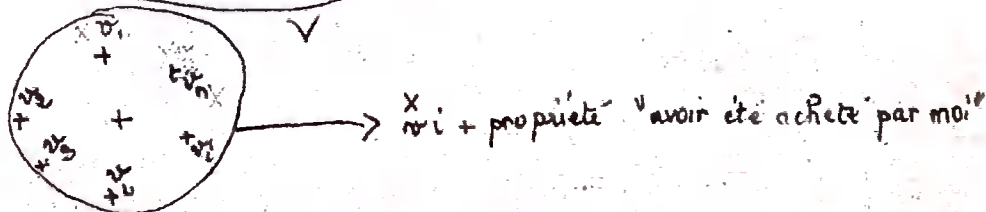 V
v₁
vₙ
v₂
vᵢ
v₃
vᵢ + propriété "avoir été acheté par moi"